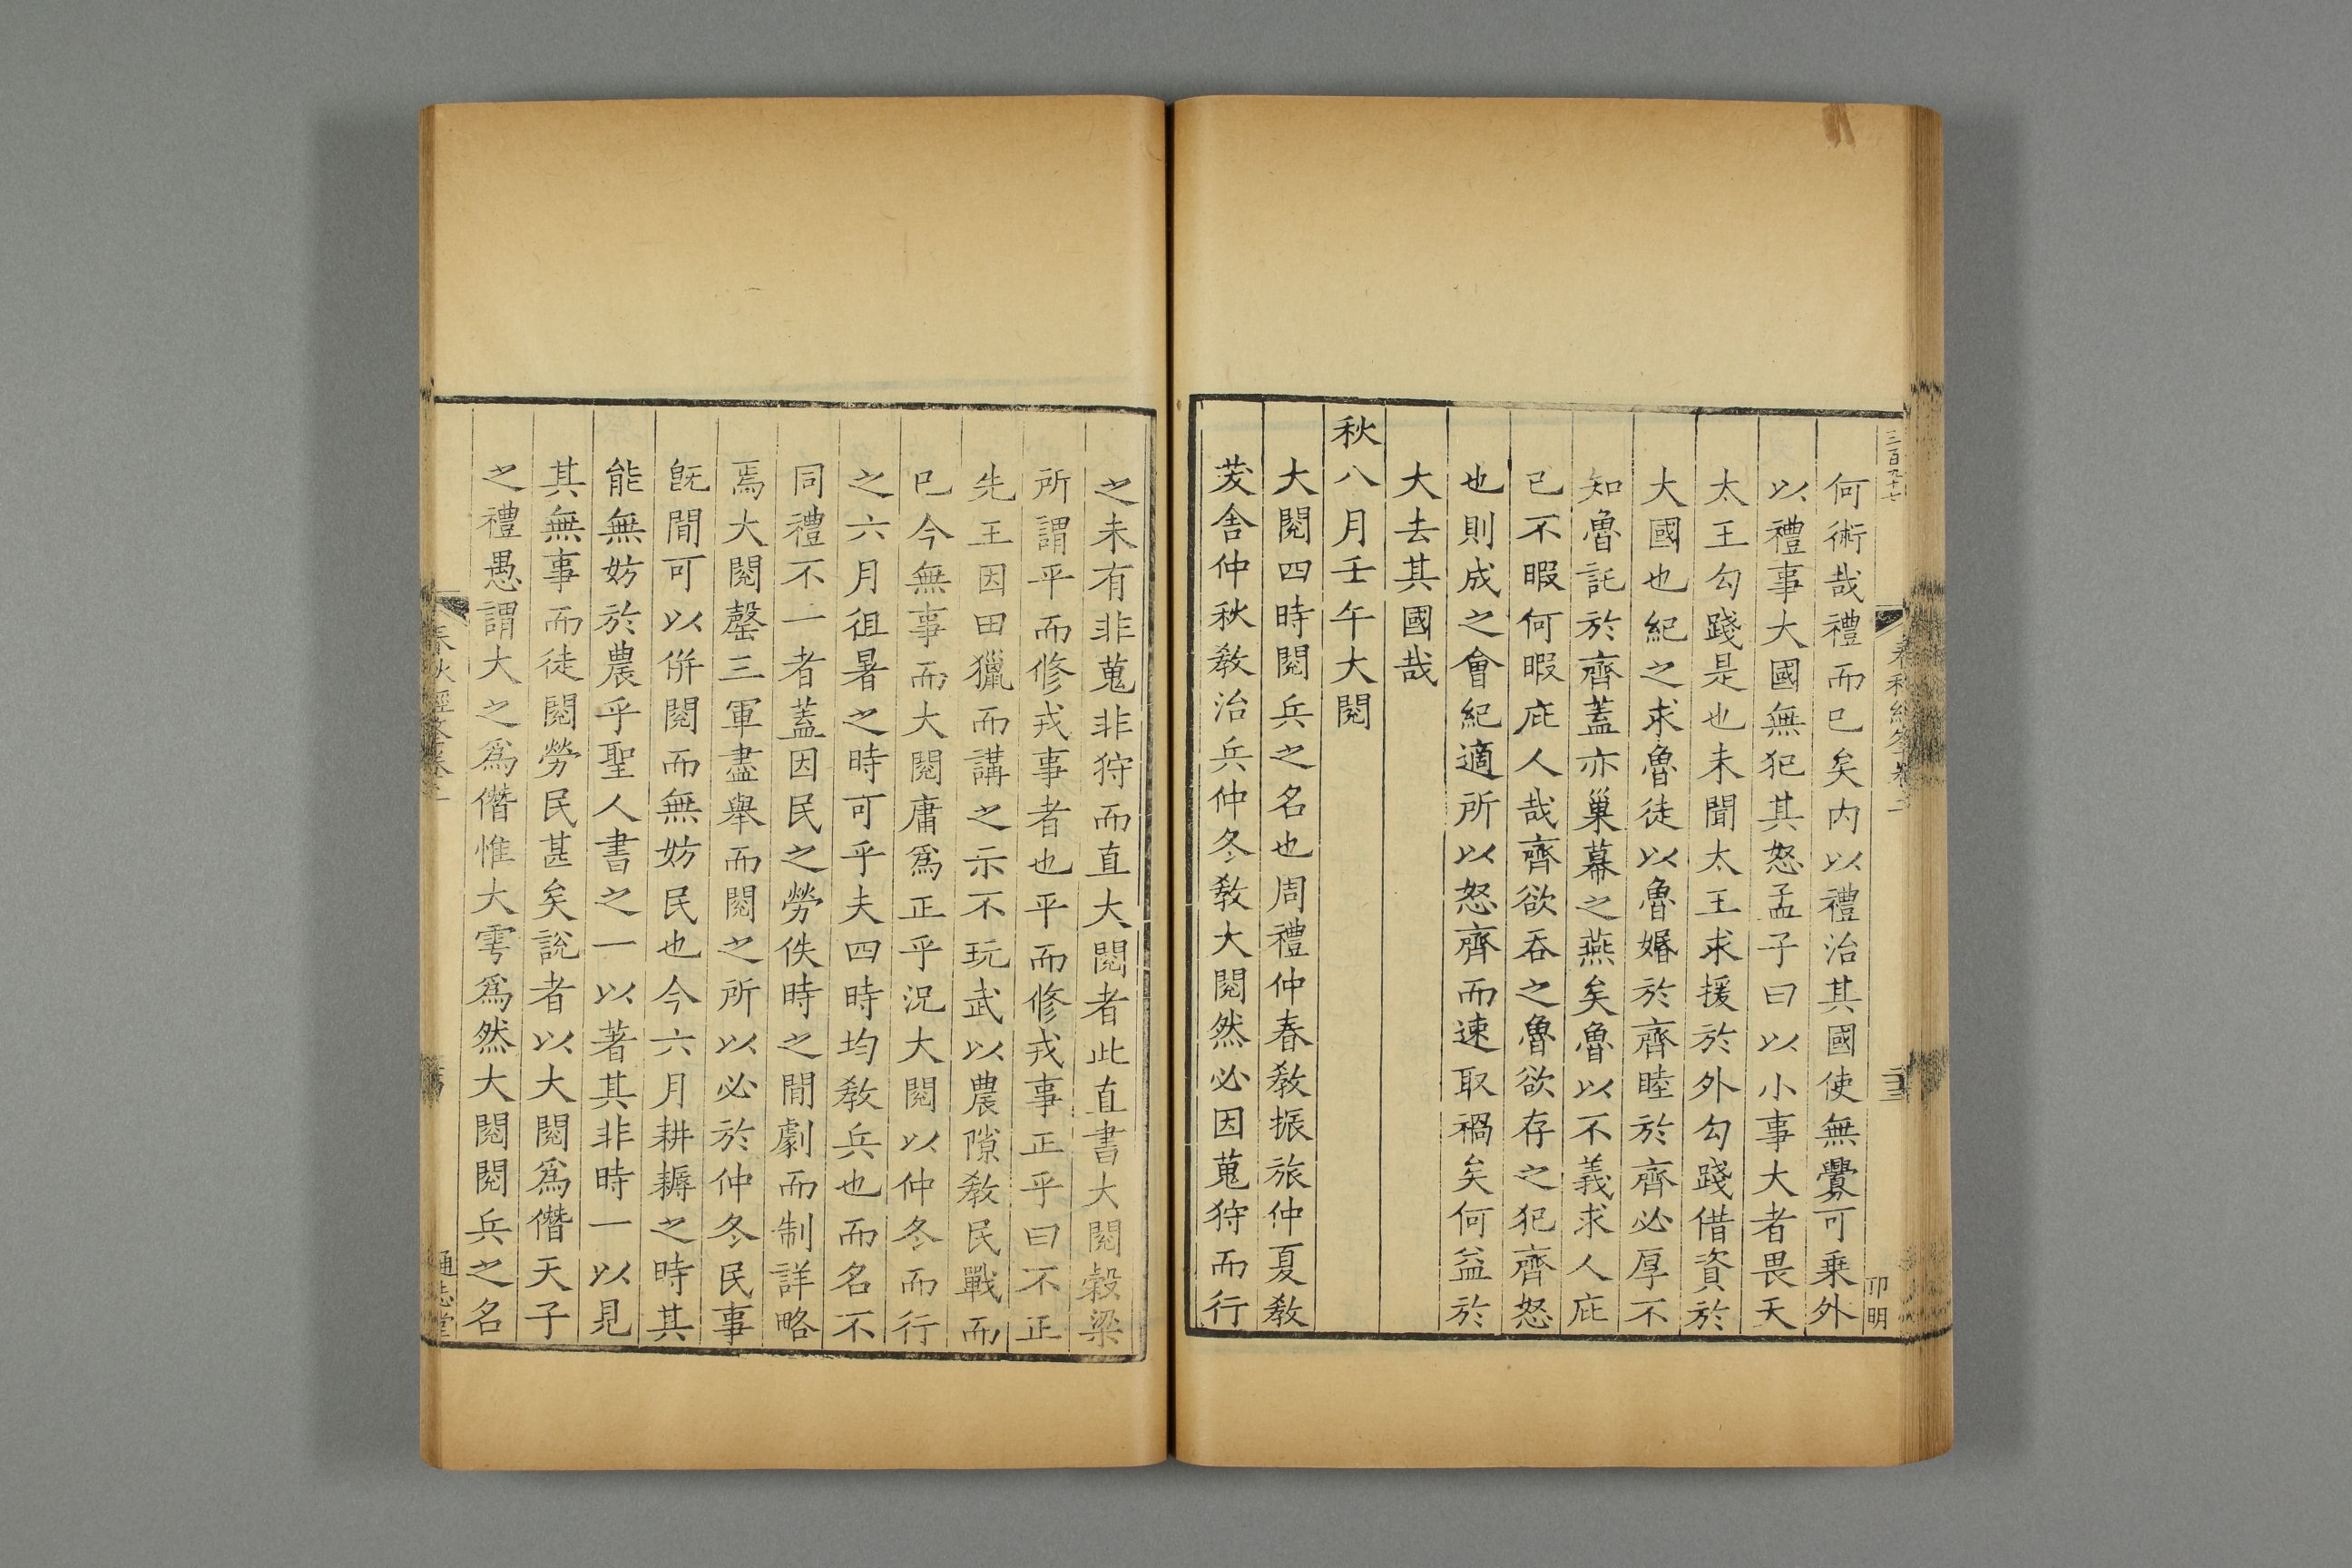 三百九十七
何術哉禮而已矣内以禮治其國使無釁可乗外
以禮事大國無犯其怒孟子曰以小事大者畏天
太王勾踐是也未聞太王求援於外勾踐借資於
大國也紀之求魯徒以魯婚於齊睦於齊必厚不
知魯託於齊蓋亦巢幕之燕矣魯以不義求人庇
已不暇何暇庇人哉齊欲吞之魯欲存之犯齊怒
也則成之會紀適所以怒齊而速取禍矣何益於
大去其國哉
秋八月壬午大閱
大閱四時閱兵之名也周禮仲春敎振旅仲夏敎
茇舍仲秋敎治兵仲冬敎大閱然必因蒐狩而行
之未有非蒐非狩而直大閱者此直書大閱穀梁
所謂平而修戎事者也平而修戎事正乎曰不正
先王因田獵而講之示不玩武以農隙敎民戰而
已今無事而大閱庸爲正乎況大閱以仲冬而行
之六月徂暑之時可乎夫四時均敎兵也而名不
同禮不一者蓋因民之勞佚時之閒劇而制詳略
焉大閱罄三軍盡舉而閱之所以必於仲冬民事
旣閒可以併閱而無妨民也今六月耕耨之時其
能無妨於農乎聖人書之一以著其非時一以見
其無事而徒閱勞民甚矣說者以大閱爲僭天子
之禮愚謂大之爲僭惟大雩爲然大閱閱兵之名
通志堂